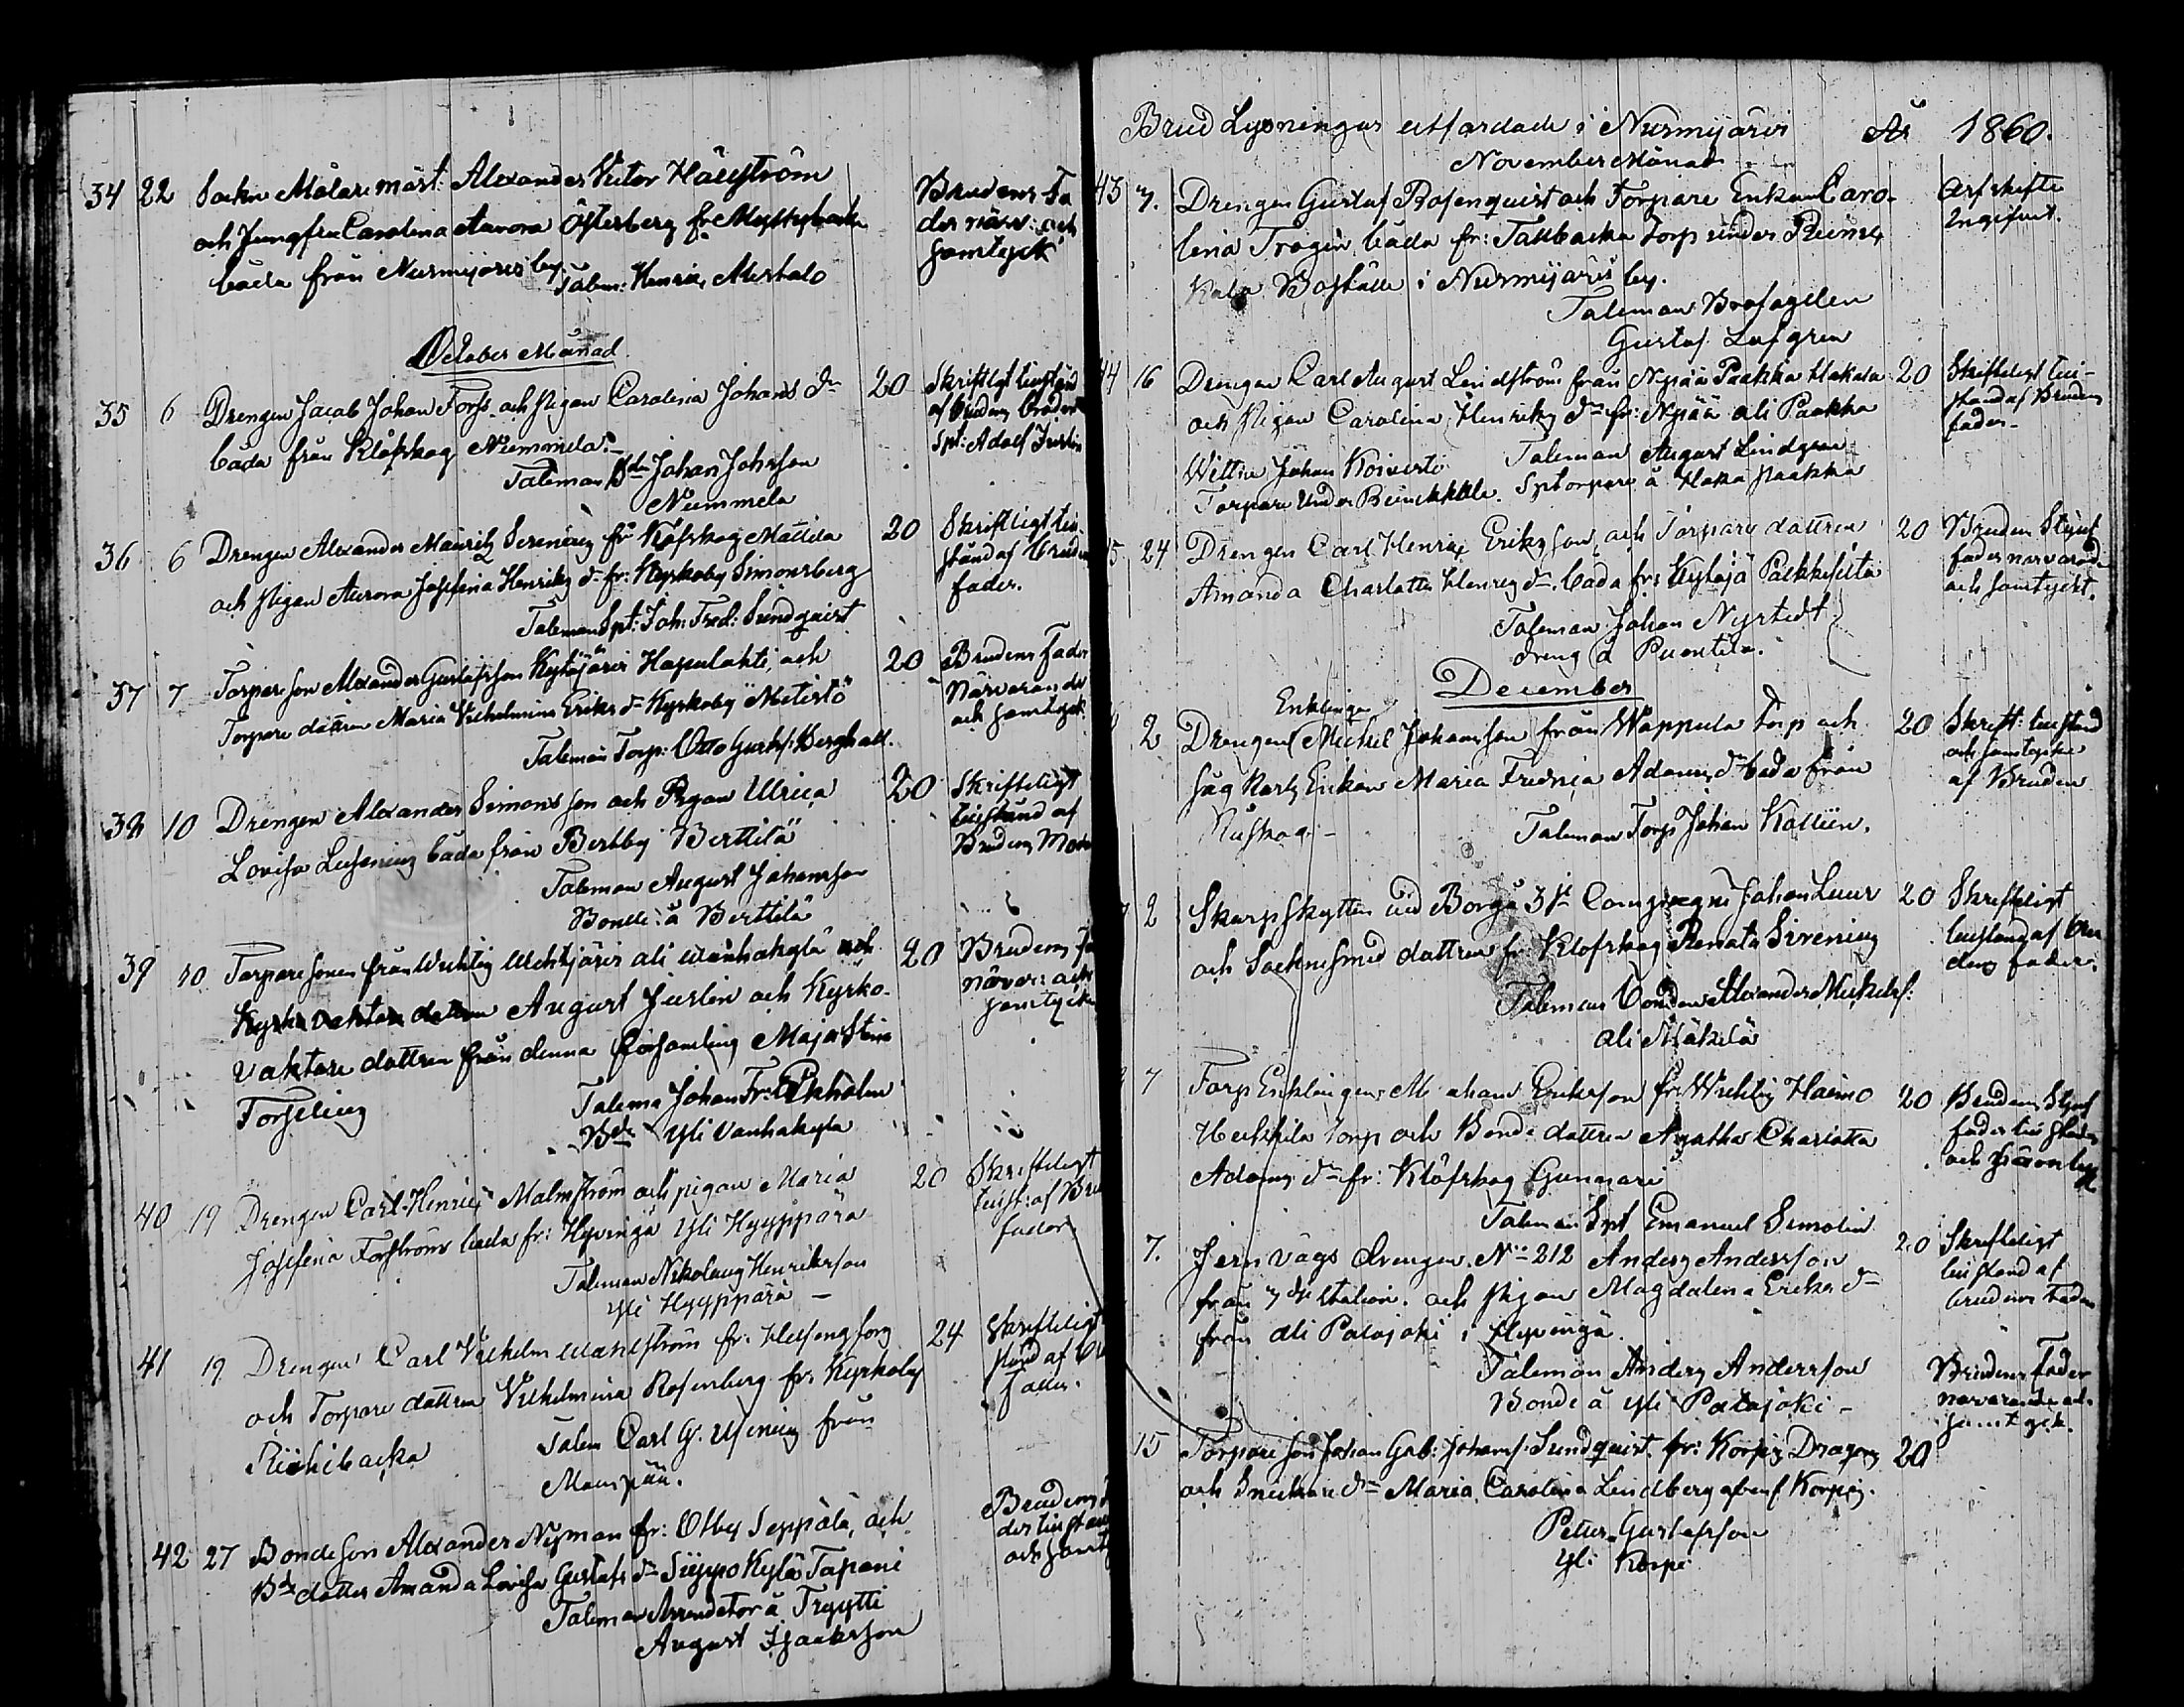 34 22 Sockn Målare mäst: Alexander Victor Hägström
och Jungfru Carolina Aurora Österberg fr.
båda från Nurmijärvi by.
Talem: Henric Mustalo
Brudens Fa
der närv: och
samtyck
October Månad
35 6 Drengen Jacob Johan Forss och pigan Carolina Johans dr 20
båda från Klöfskog Nummela.
Taleman Bdn Johan Johnsson
Nummela
Skriftligt tillstånd
af Brudens broder
Spt: Adolf
36 6 Drengen Alexander Mauritz Serenius fr Klöfskog Mattila 20
och pigan Aurora Josefina Henriks dr fr: Kyrkoby Simonsberg
Taleman Spt: Joh: Fred: Sundqvist
Skriftligt til-
stånd af Brudens
fader.
37 7 Torpare son Alexander Gustafsson Kytäjärvi Hapulahti, och 20
Torpare dattren Maria Vilhelmina Eriks dr Kyrkoby Metistö
Taleman Torp: Otto Gustaf: Berghäll.
Brudens Fader
Närvarande
och samtyck
38 10 Drengen Alexander Simonsson och Pigan Ulrica 20
Lovisa båda från Bertby Berttilä
Taleman August Johansson
Bonde å Berttilä
Skrifteligt
tillstånd af
Brudens Mod
39 10 Torpare sonen från Wichtis ali wanhakylä och 20
Kyrko vaktare dattren August Juslin och Kyrko-
vaktare dattren från denna församling Maja Stina
Forselius
Talema Johan Fr: Ekholm
Bde Yli Vanhakylä
Brudens Fa
närvar: och
samtycke
40 19 Drengen Carl Henric Malmström och pigan Maria 20
Josefina Forström båda fr: Hyvinge Yli Hyyppärä
Taleman Nikolaus Henriksson
Yli Hyyppärä —
Skrifteligt
tillst: af Bru
fader
41 19 Drengen Carl Vilhelm fr. Helsingfors 24
och Torpare dattren Vilhelmina Rosenberg fr: Kyrkoby
Riihibacka
Talem Carl G. från
Skrifteligt
stånd af
fader.
42 27 Bonde son Alexander Nyman fr: Otby Seppälä, och
Bde dotter Amanda Lovisa Gustafs dr Suppo Kylä Tapani
Taleman Arrendator å Tryytti
August Isaaksson
Brudens
och samt
Brud Lysningar utfärdade i Nurmijärvi År 1860.
November Månad
43 7. Drengen Gustaf Rosenquist och Torpare Enkan Caro-
lina Tragin båda fr: Tallbacka torp under
Kala Boställe i Nurmijärvi by.
Taleman Brofogden
Gustaf Lofgren
Arfskifte
Ingifvet.
44 16 Drengen Carl August Lindström från Npää Paakka Hakala 20
och Pigan Carolina Henriks dr fr: Npää ali Paakka
Wittne Johan Koivisto Taleman August Lindgren
Torpare under Spt torpare å Haka Paakka
Skrifteligt till-
stånd af Brudens
fader.
45 24 Drengen Carl Henric Eriksson, och Torpare dattren 20
Amanda Charlotta Henrics dr. båda fr: Kytäjä
Taleman Johan Nystedt
dreng å Puontila.
Brudens Styf
fader närvarande
och samtyckt.
December
Enklingen
2 Drengen Michel Johansson från Wappula torp och 20
Enkan Maria Fredrica Adams dr båda från
Nuskog —
Taleman Torp Johan Kallein.
Skrift: tillstånd
och samtycke
af Bruden
2 Skarpskytten vid Borgå 3je Compagni Johan Luur 20
och Sockne smed dattren fr Klöfskog Renata Sirenius
Taleman Bonden Alexander Mickels:
ali Mäkilä
Skrifteligt
tillstånd af Bru
dens fader.
7 Torp Enklingen Erikson fr. Wichtis Haimo 20
Heikkila torp och Bonde dattren Agatha Charlotta
Adams dr fr: Klöfskog Gunnari
Taleman Spt Emanuel Simolin
Brudens Styf
fader
7. Jernvägs drengen No 212 Anders Andersson 20
från 7de station. och pigan Magdalena Eriks dr
från ali Palojoki i Hyvingä.
Taleman Anders Andersson
Bonde å yli Palojoki —
Skrifteligt
tillstånd af
brudens fader
15 Torpare son Johan Gab: Johans: Sundquist fr: Korpi Dragons 20
och Snickare dr Maria Carolina Lindberg Korpi.
Petter Gustafsson
yli Korpi
Brudens Fader
närvarande och
samtyck.